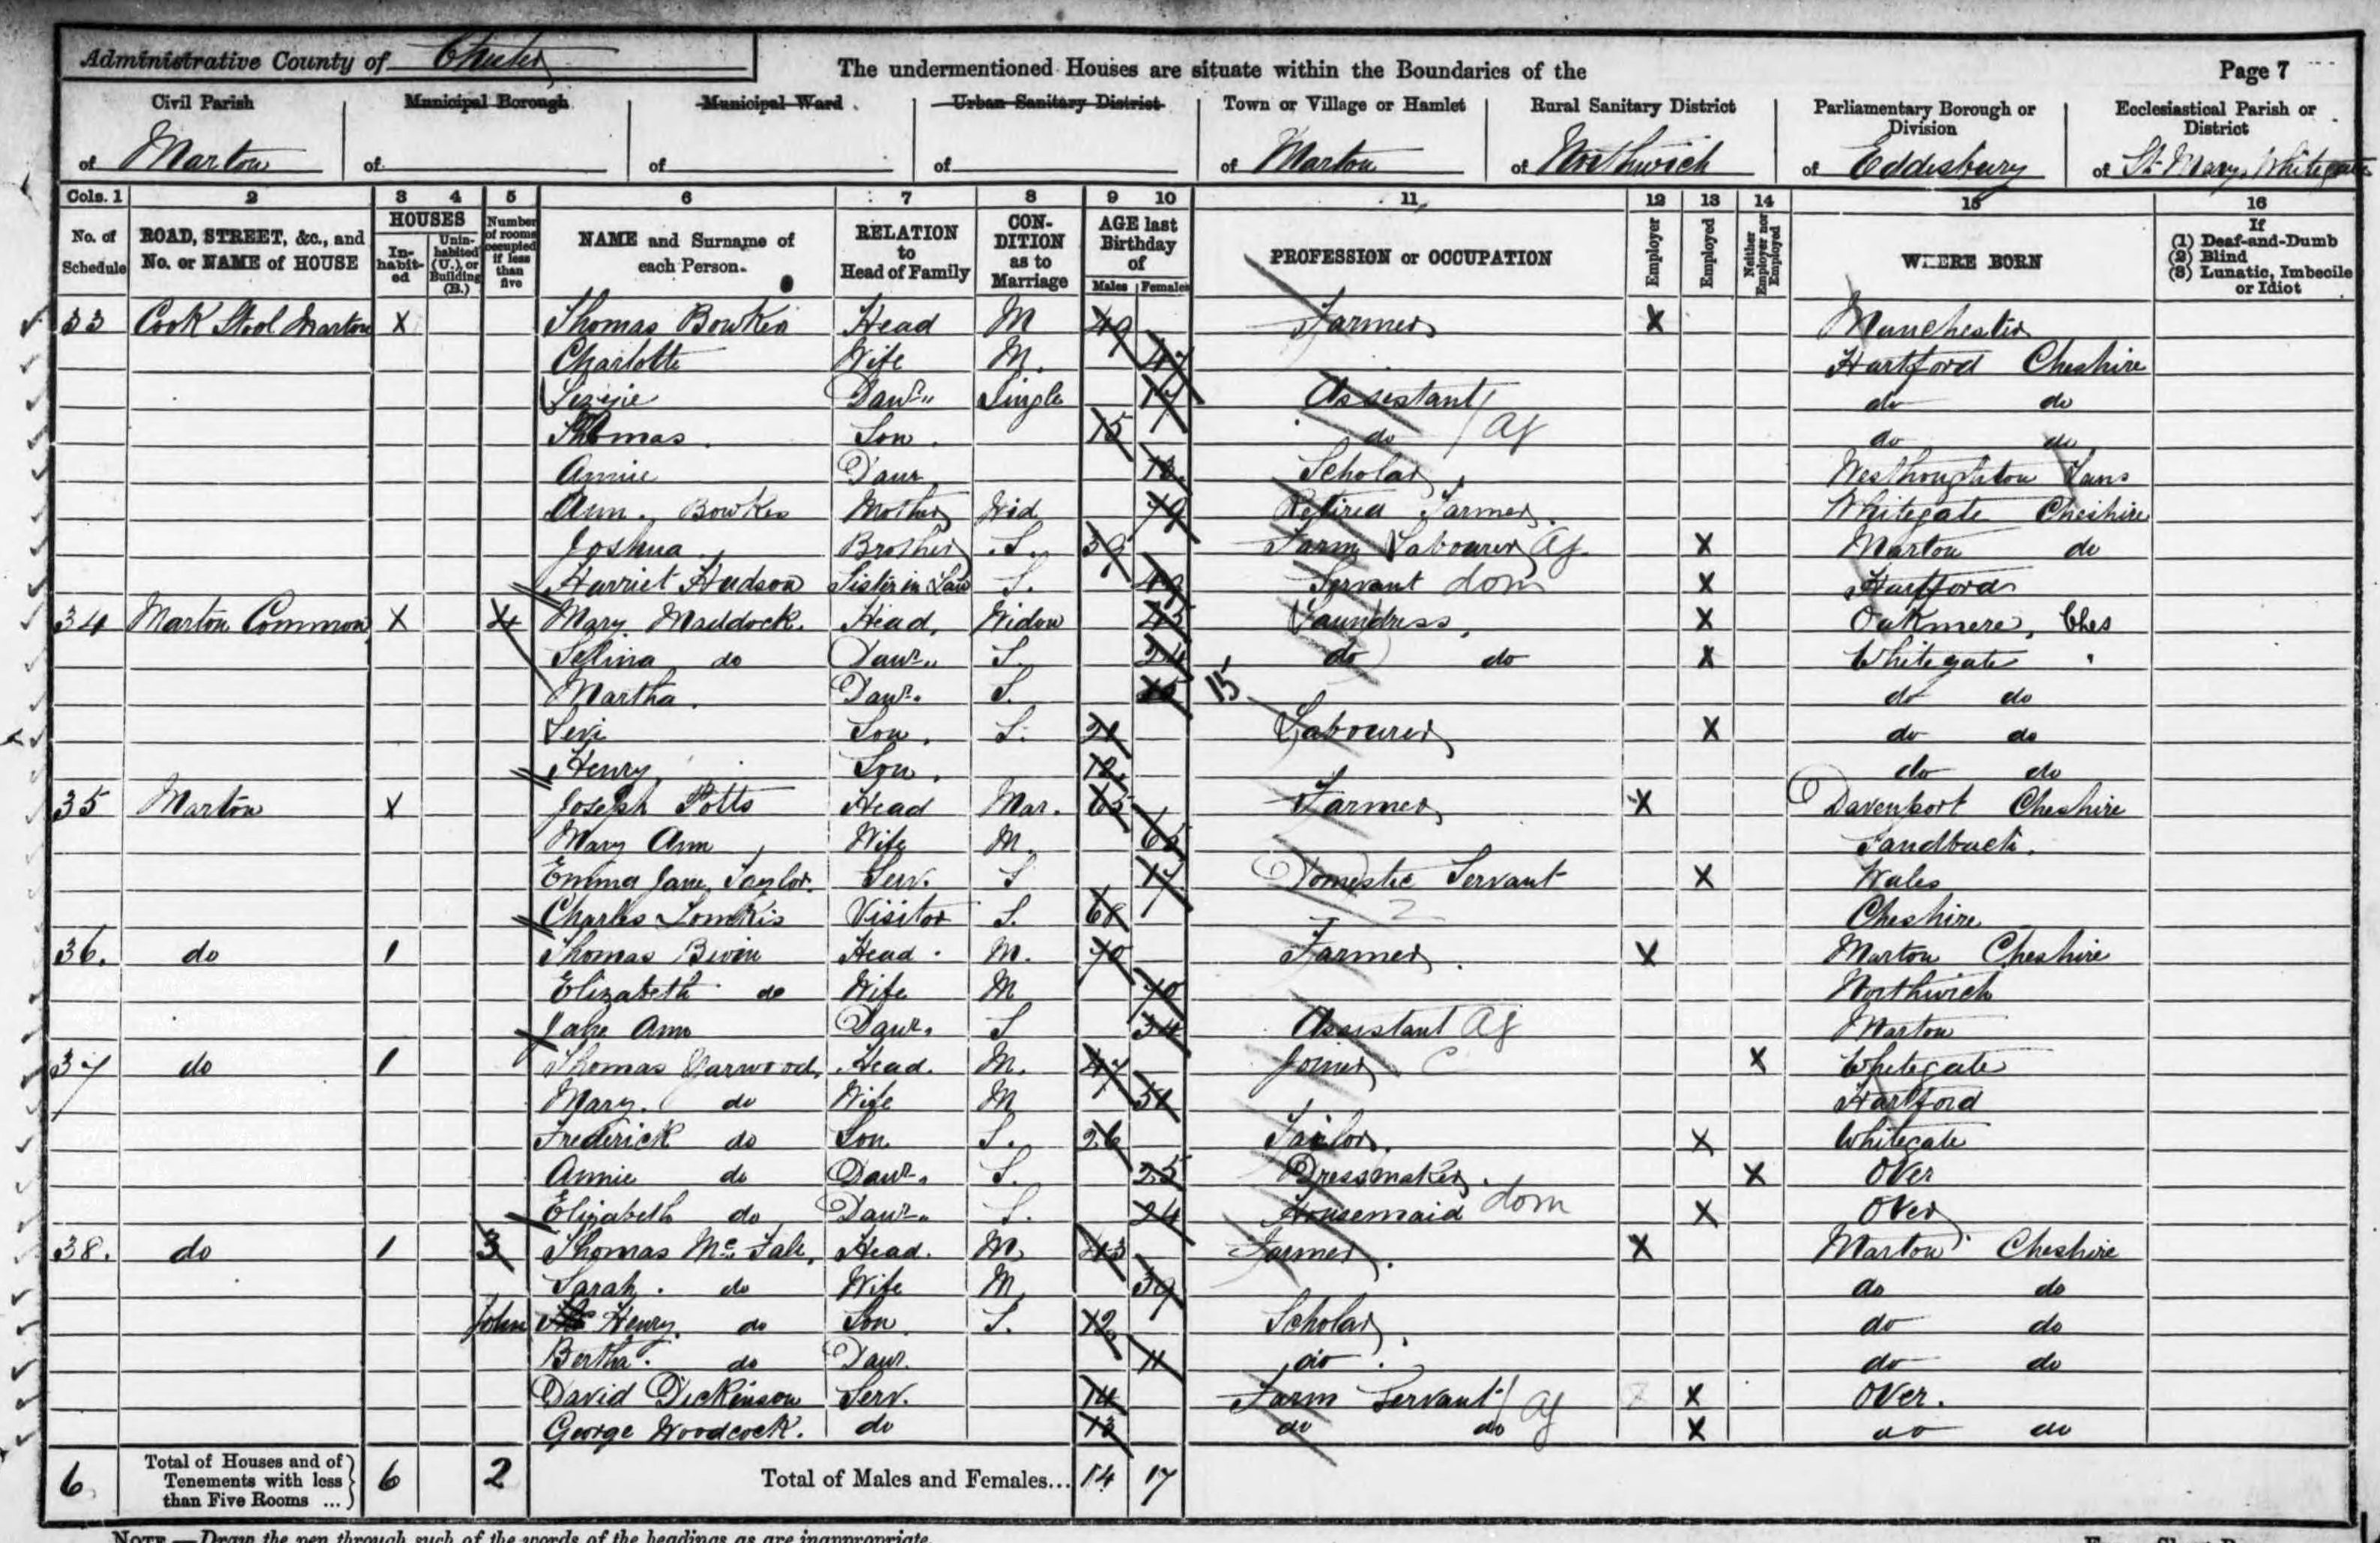 Administrative County of Chester
The undermentioned Houses are situate within the Boundaries of the
Page 7
Civil Parish of Marton
Municipal Borough of
Municipal Ward of
Urban Sanitary District of
Town or Village or Hamlet of Marton
Rural Sanitary District of Northwich
Parliamentary Borough or Division of Eddisbury
Ecclesiastical Parish or District of St Mary, Whitegate
Cols. 1 2 3 4 5 6 7 8 9 10 11 12 13 14 15 16
No. of Schedule
ROAD, STREET, &c., and No. or NAME of HOUSE
HOUSES
In-habit-ed
Unin-habited (U.), or Building (B.)
Number of rooms occupied if less than five
NAME and Surname of each Person.
RELATION to Head of Family
CON-DITION as to Marriage
AGE last Birthday of
Males Females
PROFESSION or OCCUPATION
Employer
Employed
Neither Employer nor Employed
WHERE BORN
If (1) Deaf-and-Dumb (2) Blind (3) Lunatic, Imbecile or Idiot
33 Cook Stool Marton X Thomas Bowker Head M 49 Farmer X Manchester
Charlotte Wife M. 47 Hartford Cheshire
Lizzie Dawr Single 17 Assistant do do
Thomas. Son. 15 do Ag do do
Annie Daur 13 Scholar Westhoughton Lans
Ann. Bowker Mother Wid 79 Retired Farmer. Whitegate Cheshire
Joshua. Brother S. Farm Labourer Ag X Marton do
Harriet Hudson Sister in Law S. 49 Servant dom X Hartford
34 Marton Common X 4 Mary Maddock. Head, Widow 45 Laundress, X Oakmere, Ches
Selina do Dawr. S. 24 do do X Whitegate "
Martha. Dawr. S. 15 do do
Levi Son, S. 21 Labourer X do do
Henry, Son, 12, do do
35 Marton X Joseph Potts Head Mar. 65 Farmer X Davenport Cheshire
Mary Ann Wife M. 65 Sandbach.
Emma Jane Taylor. Serv. S 17 Domestic Servant X Wales
Charles Visitor S. 68 2 Cheshire
36. do 1 Thomas Head. M. 70 Farmer. X Marton Cheshire
Elizabeth do Wife M 70 Northwich
Jane Ann Dawr. S 34 Assistant Ag Marton
37 do 1 Thomas Yarwood, Head. M. 47 Joiner C X Whitegate
Mary. do Wife M 51 Hartford
Frederick do Son S. 26 Tailor. X Whitegate
Annie do Dawr. S. 25 Dressmaker. X Over
Elizabeth do Dawr. S. 24 Housemaid dom X Over
38. do 1 3 Thomas Mc Fall, Head. M. 43 Farmer. X Marton Cheshire
Sarah. do Wife M 39 do do
John Henry. do Son S. 12 Scholar. do do
Bertha. do Daur. 11 do. do do
David Dickinson Serv. 14 Farm Servant Ag X Over.
George Woodcock. do 13 do do Ag X do do
6 Total of Houses and of Tenements with less than Five Rooms ... 6 2 Total of Males and Females... 14 17
NOTE.—Draw the pen through such of the words of the headings as are inappropriate.